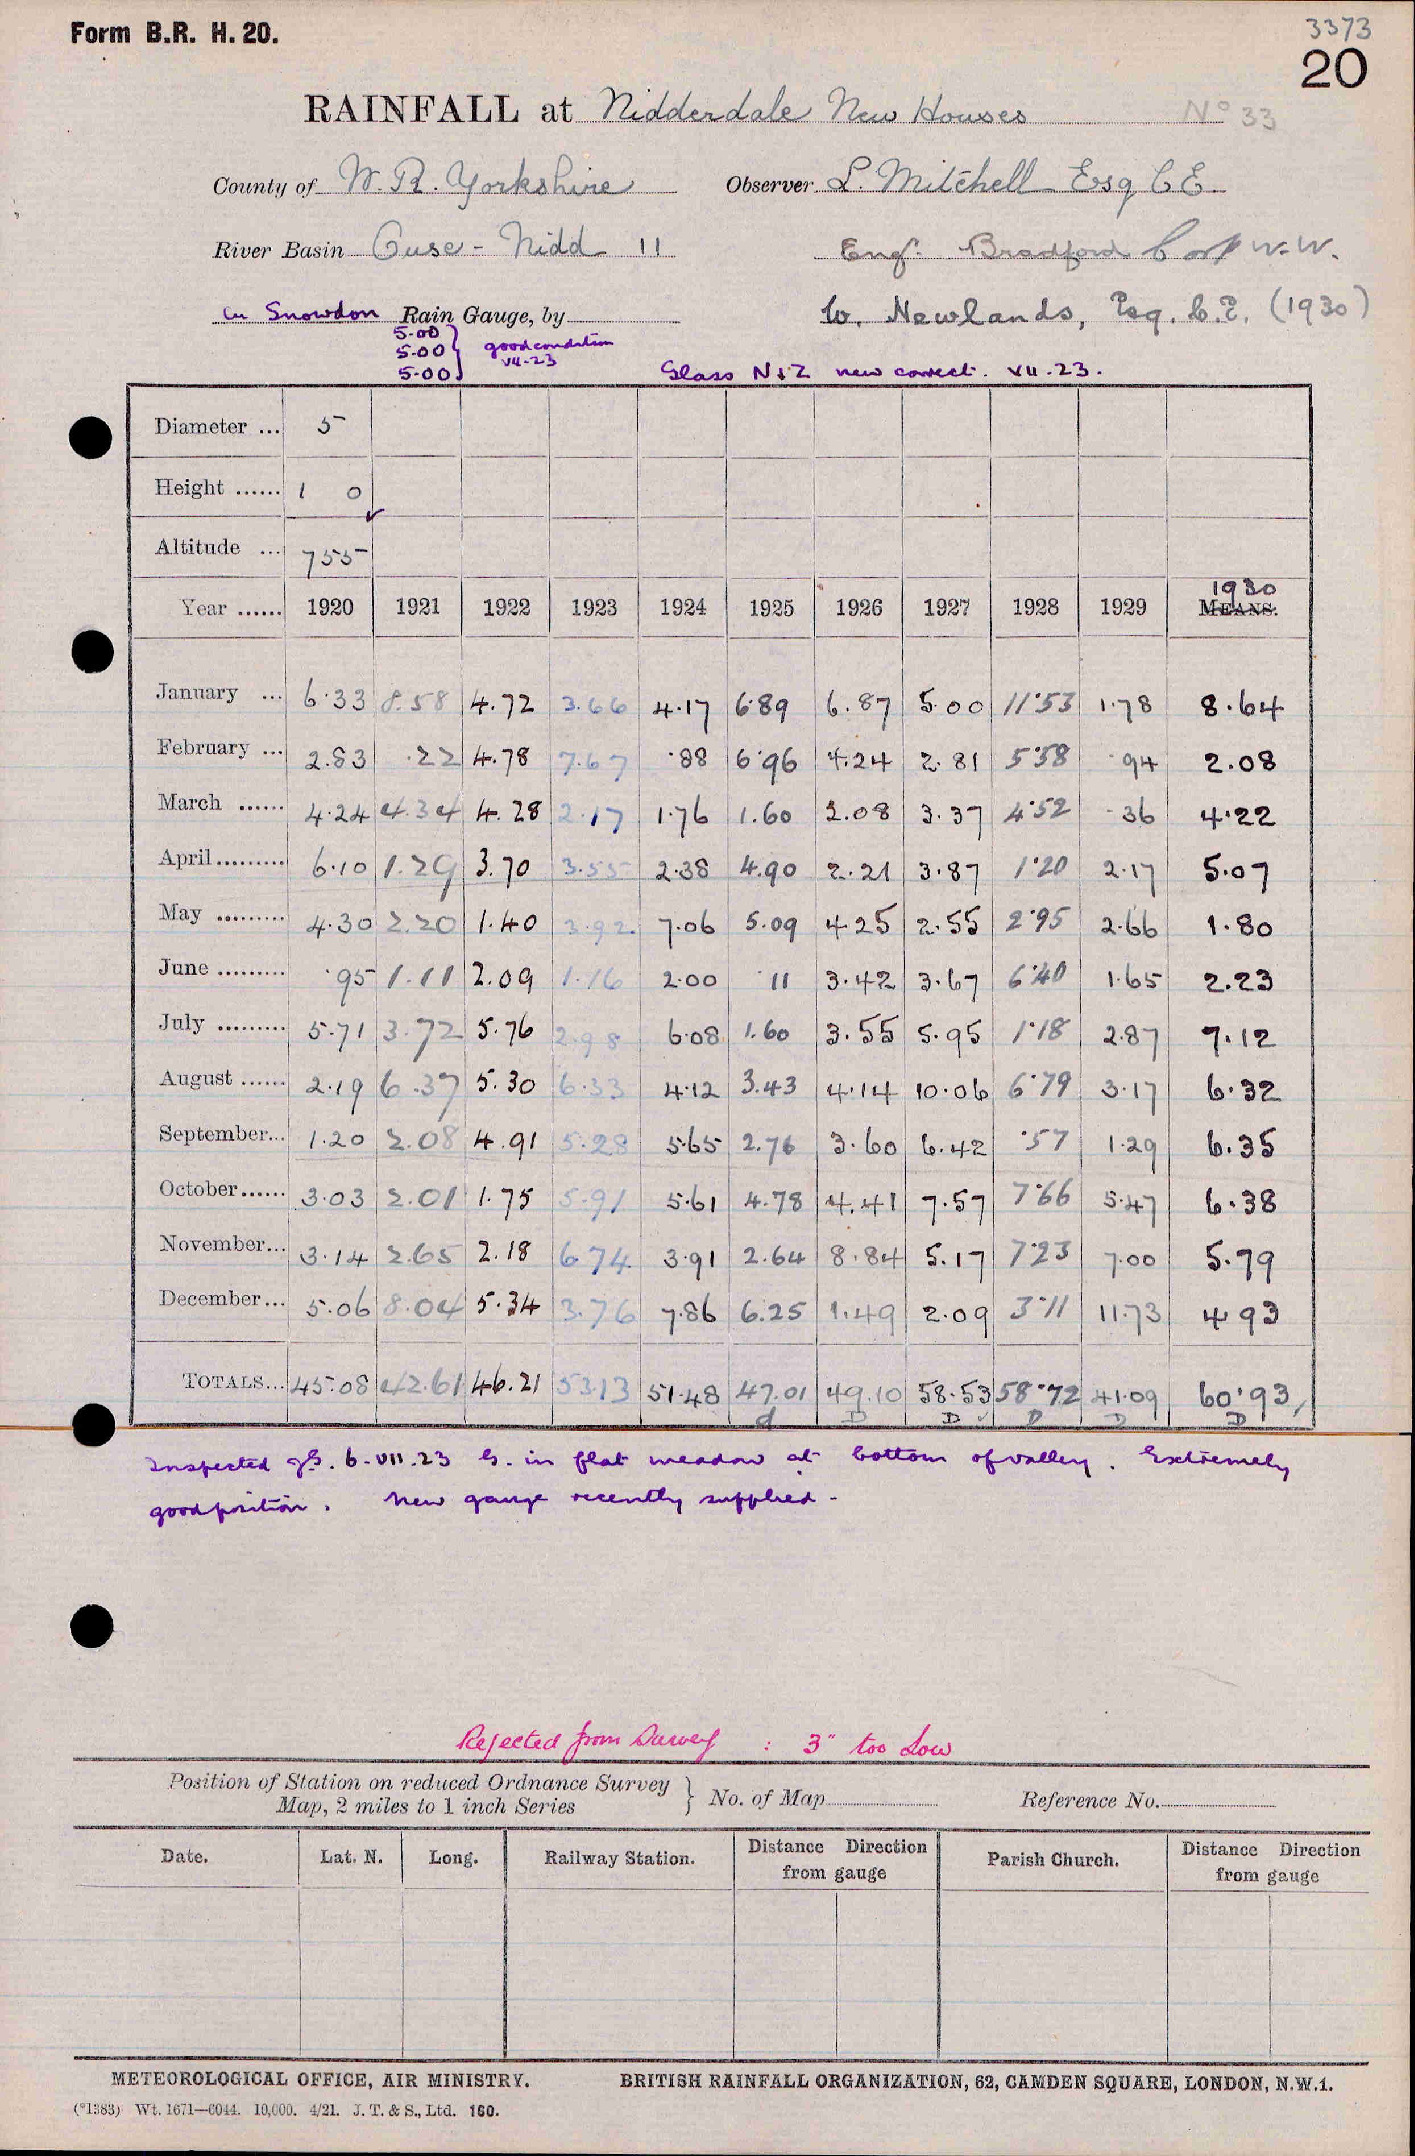 Form B.R. H. 20.
3373
20
RAINFALL at Nidderdale New Houses Nº 33
County of W. R. Yorkshire Observer L. Mitchell Esq C E.
River Basin Ouse - Nidd 11 Engr. Bradford Corp W. W.
Cu Snowdon Rain Gauge, by W. Newlands, Esq. C. E. (1930)
5.00
5.00 } good condition
5.00 VII-23
Glass N & Z new correct. VII.23.
Diameter ... 5
Height ...... 1 0
Altitude ... 755
Year ...... 1920 1921 1922 1923 1924 1925 1926 1927 1928 1929 1930 MEANS.
January ... 6.33 8.58 4.72 3.66 4.17 6.89 6.87 5.00 11.53 1.78 8.64
February ... 2.83 .22 4.78 7.67 .88 6.96 4.24 2.81 5.58 .94 2.08
March ...... 4.24 4.34 4.28 2.17 1.76 1.60 2.08 3.37 4.52 .36 4.22
April ......... 6.10 1.29 3.70 3.55 2.38 4.90 2.21 3.87 1.20 2.17 5.07
May ......... 4.30 2.20 1.40 3.92 7.06 5.09 4.25 2.55 2.95 2.66 1.80
June ......... .95 1.11 2.09 1.16 2.00 .11 3.42 3.67 6.40 1.65 2.23
July ......... 5.71 3.72 5.76 2.98 6.08 1.60 3.55 5.95 1.18 2.87 7.12
August ...... 2.19 6.37 5.30 6.33 4.12 3.43 4.14 10.06 6.79 3.17 6.32
September... 1.20 2.08 4.91 5.28 5.65 2.76 3.60 6.42 .57 1.29 6.35
October...... 3.03 2.01 1.75 5.91 5.61 4.78 4.41 7.57 7.66 5.47 6.38
November... 3.14 2.65 2.18 6.74 3.91 2.64 8.84 5.17 7.23 7.00 5.79
December... 5.06 8.04 5.34 3.76 7.86 6.25 1.49 2.09 3.11 11.73 4.93
TOTALS... 45.08 42.61 46.21 53.13 51.48 47.01 49.10 58.53 58.72 41.09 60.93
d D D D D D
Inspected 6-VII.23 G. in flat meadow at bottom of valley. Extremely
good position. New gauge recently supplied -
Rejected from Survey : 3" too Low
Position of Station on reduced Ordnance Survey
Map, 2 miles to 1 inch Series } No. of Map Reference No.
Date. Lat. N. Long. Railway Station. Distance Direction from gauge Parish Church. Distance Direction from gauge
METEOROLOGICAL OFFICE, AIR MINISTRY. BRITISH RAINFALL ORGANIZATION, 62, CAMDEN SQUARE, LONDON, N.W.1.
(*1383) Wt. 1671—6044. 10,000. 4/21. J. T. & S., Ltd. 160.